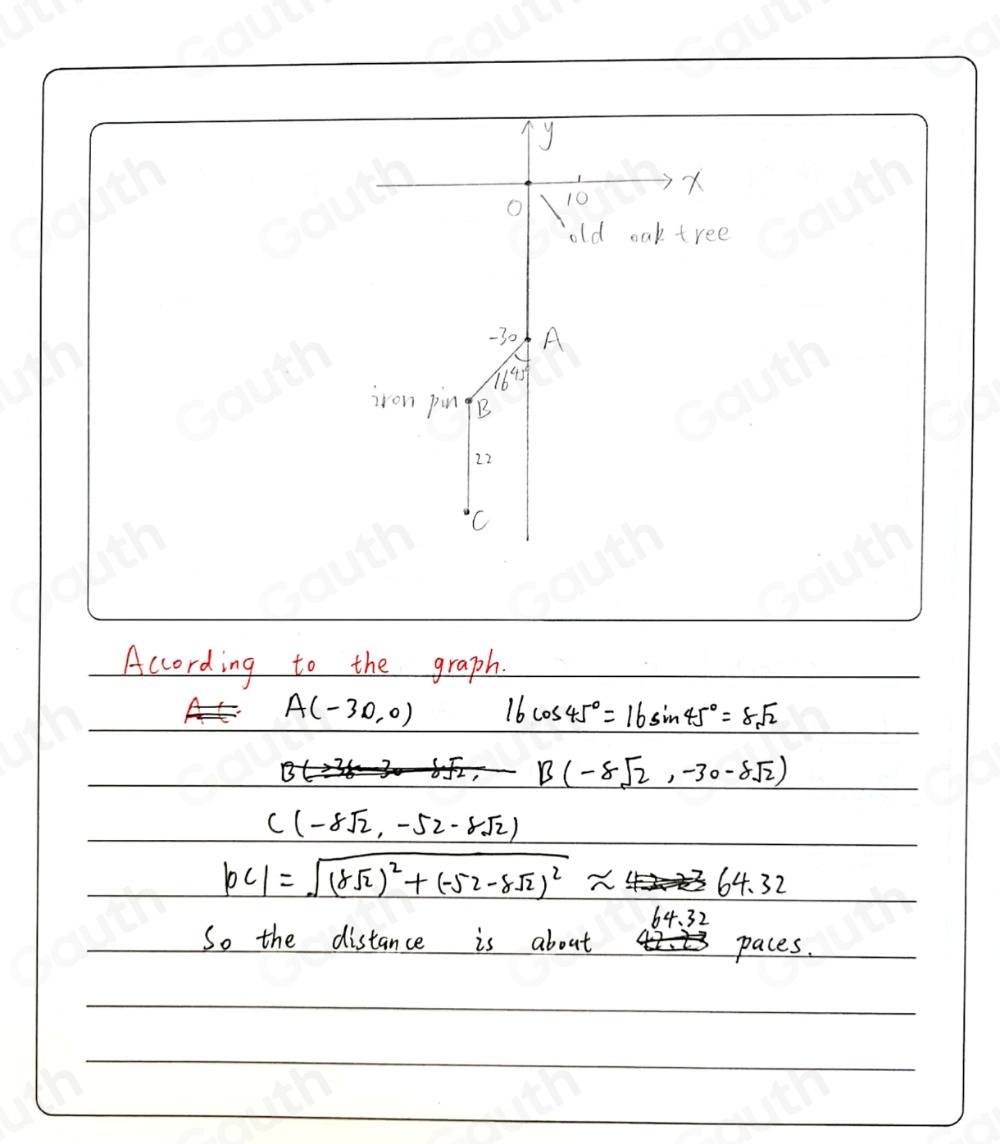 y
x
O 10
old oak tree
-30 A
16 45°
iron pin B
22
C
According to the graph.
A(-30,0) 16cos45°=16sin45°=8√2
B(-8√2,-30-8√2)
C(-8√2,-52-8√2)
|OC|=√(8√2)²+(-52-8√2)² ≈ 42.23 64.32
64.32
So the distance is about 42.23 paces.